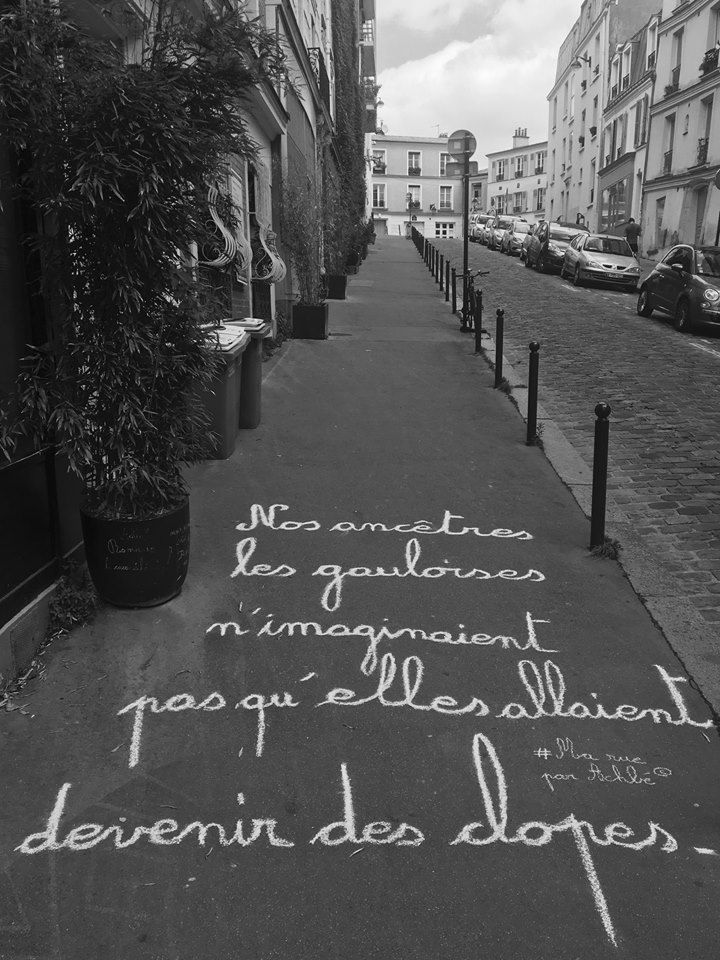 Nos ancêtres
les gauloises
n'imaginaient
pas qu'elles allaient
#Ma rue
par Achbé©
devenir des clopes.